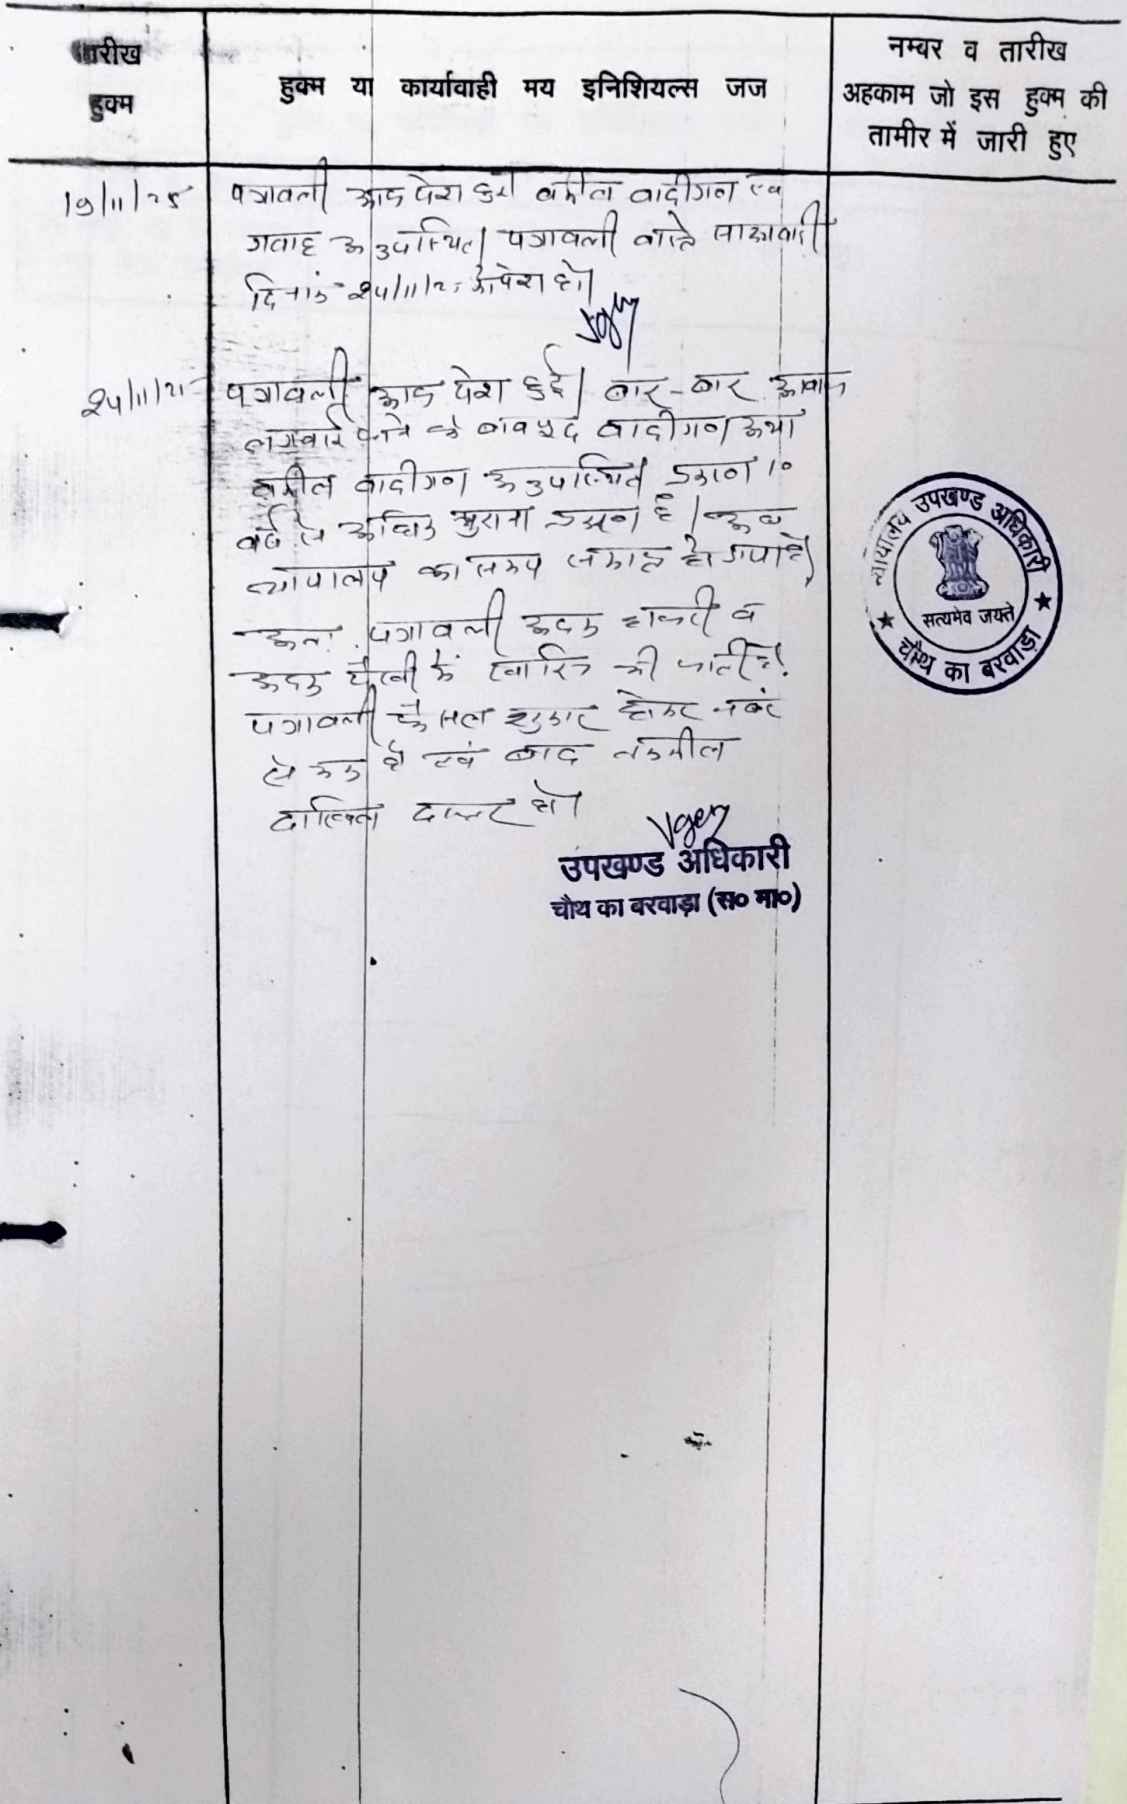 तारीख
हुक्म
हुक्म या कार्यावाही मय इनिशियल्स जज
नम्बर व तारीख
अहकाम जो इस हुक्म की
तामीर में जारी हुए
19/11/25 पत्रावली आज पेश हुई वकील वादीगण एवं
गवाह अनुपस्थित। पत्रावली वास्ते साक्ष्यवादी
दिनांक 24/11/25 को पेश हो।
24/11/25 पत्रावली आज पेश हुई। बार-बार आवाज
लगवाई जाने के बावजूद वादीगण अथवा
वकील वादीगण अनुपस्थित प्रकरण 10
वर्ष से अधिक पुराना प्रकरण है। अब
न्यायालय का समय समाप्त हो गया है।
अतः पत्रावली अदम हाजरी व
अदम पैरवी में खारिज की जाती है।
पत्रावली फैसल शुमार होकर नंबर
से कम हो एवं बाद तकमील
दाखिल दफ्तर हो।
उपखण्ड अधिकारी
चौथ का बरवाड़ा (स० मा०)
न्यायालय उपखण्ड अधिकारी
सत्यमेव जयते
★ चौथ का बरवाड़ा ★